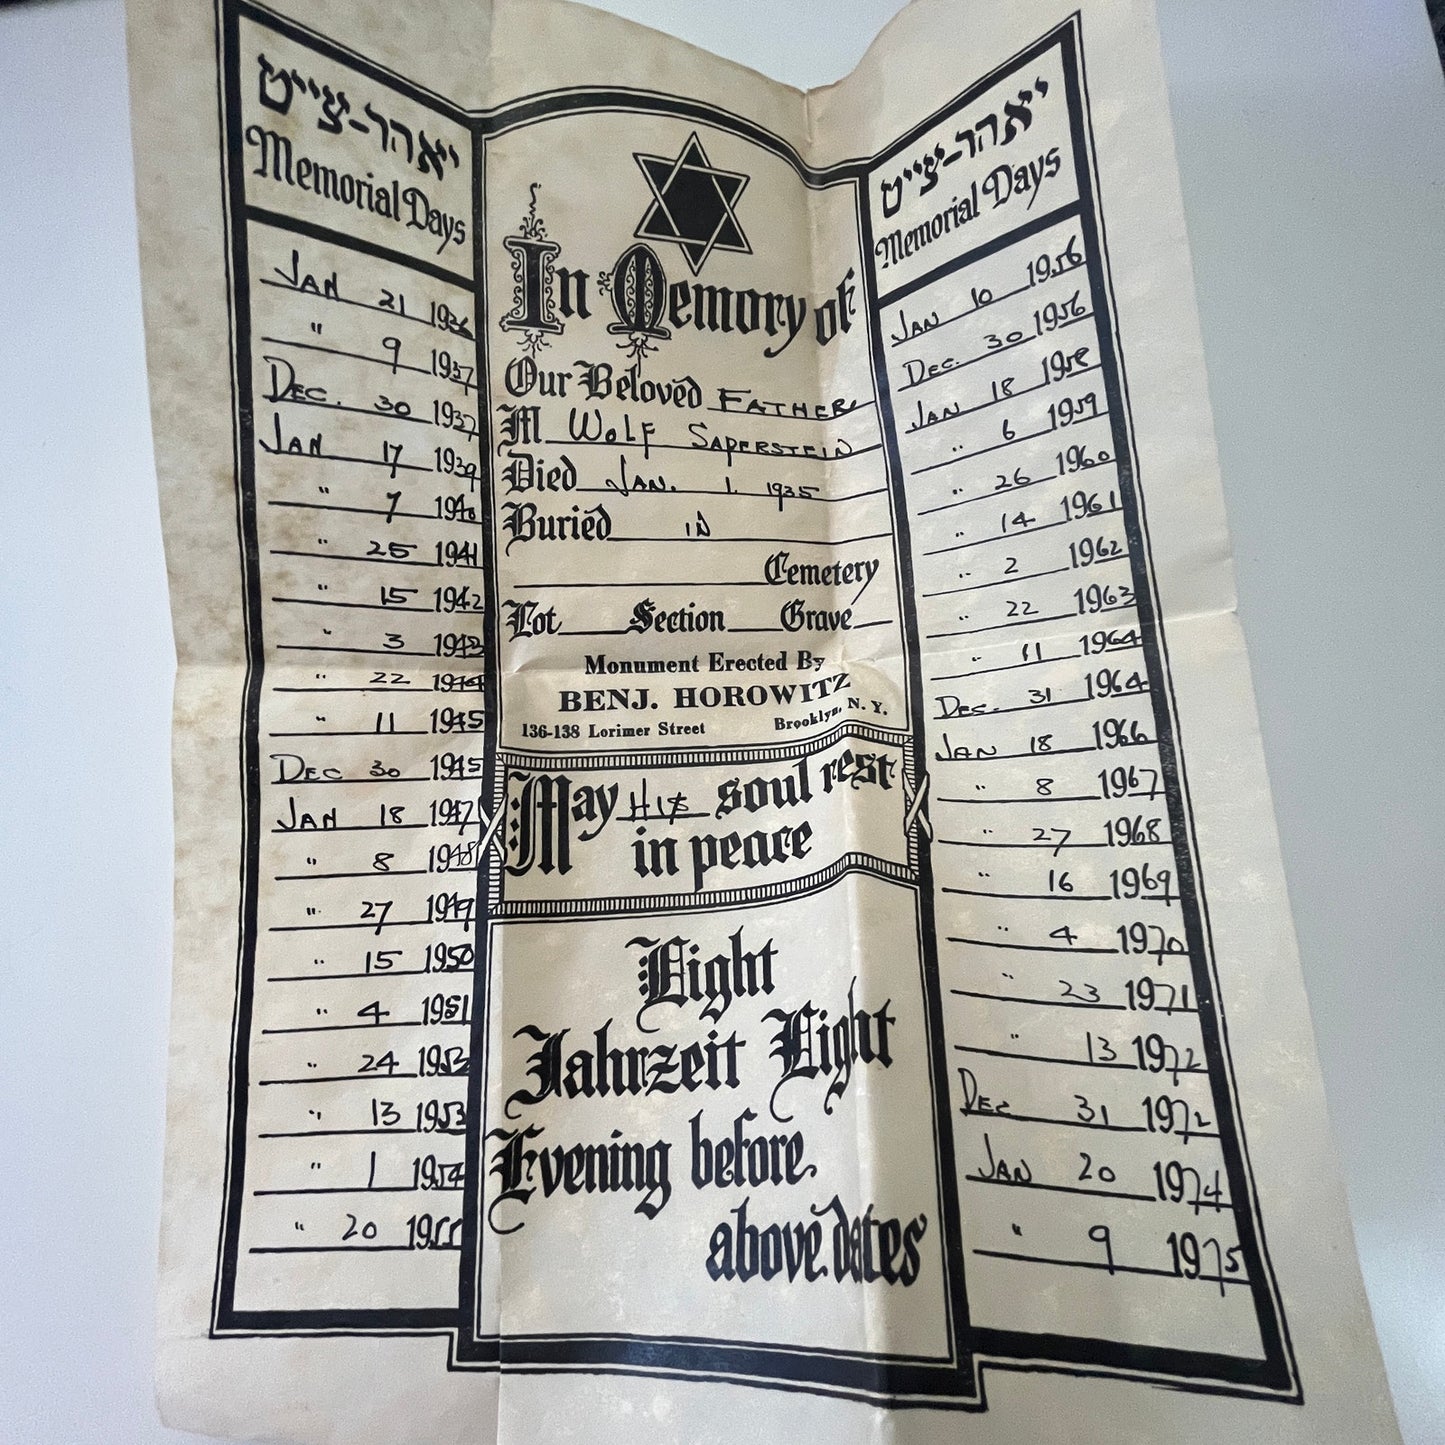 יאהר-צייט
Memorial Days
JAN 21 1936
" 9 1937
DEC. 30 1937
JAN 17 1939
" 7 1940
" 25 1941
" 15 1942
" 3 1943
" 22 1944
" 11 1945
DEC 30 1945
JAN 18 1947
" 8 1948
" 27 1949
" 15 1950
" 4 1951
" 24 1952
" 13 1953
" 1 1954
" 20 1955
In Memory of
Our Beloved FATHER
M WOLF SAPERSTEIN
Died JAN. 1. 1935
Buried IN
Cemetery
Lot Section Grave
Monument Erected By
BENJ. HOROWITZ
136-138 Lorimer Street Brooklyn, N. Y.
May HIS soul rest
in peace
Light
Jahrzeit Light
Evening before
above dates
יאהר-צייט
Memorial Days
JAN 10 1956
DEC. 30 1956
JAN 18 1958
" 6 1959
" 26 1960
" 14 1961
" 2 1962
" 22 1963
" 11 1964
DEC. 31 1964
JAN 18 1966
" 8 1967
" 27 1968
" 16 1969
" 4 1970
" 23 1971
" 13 1972
DEC 31 1972
JAN 20 1974
" 9 1975